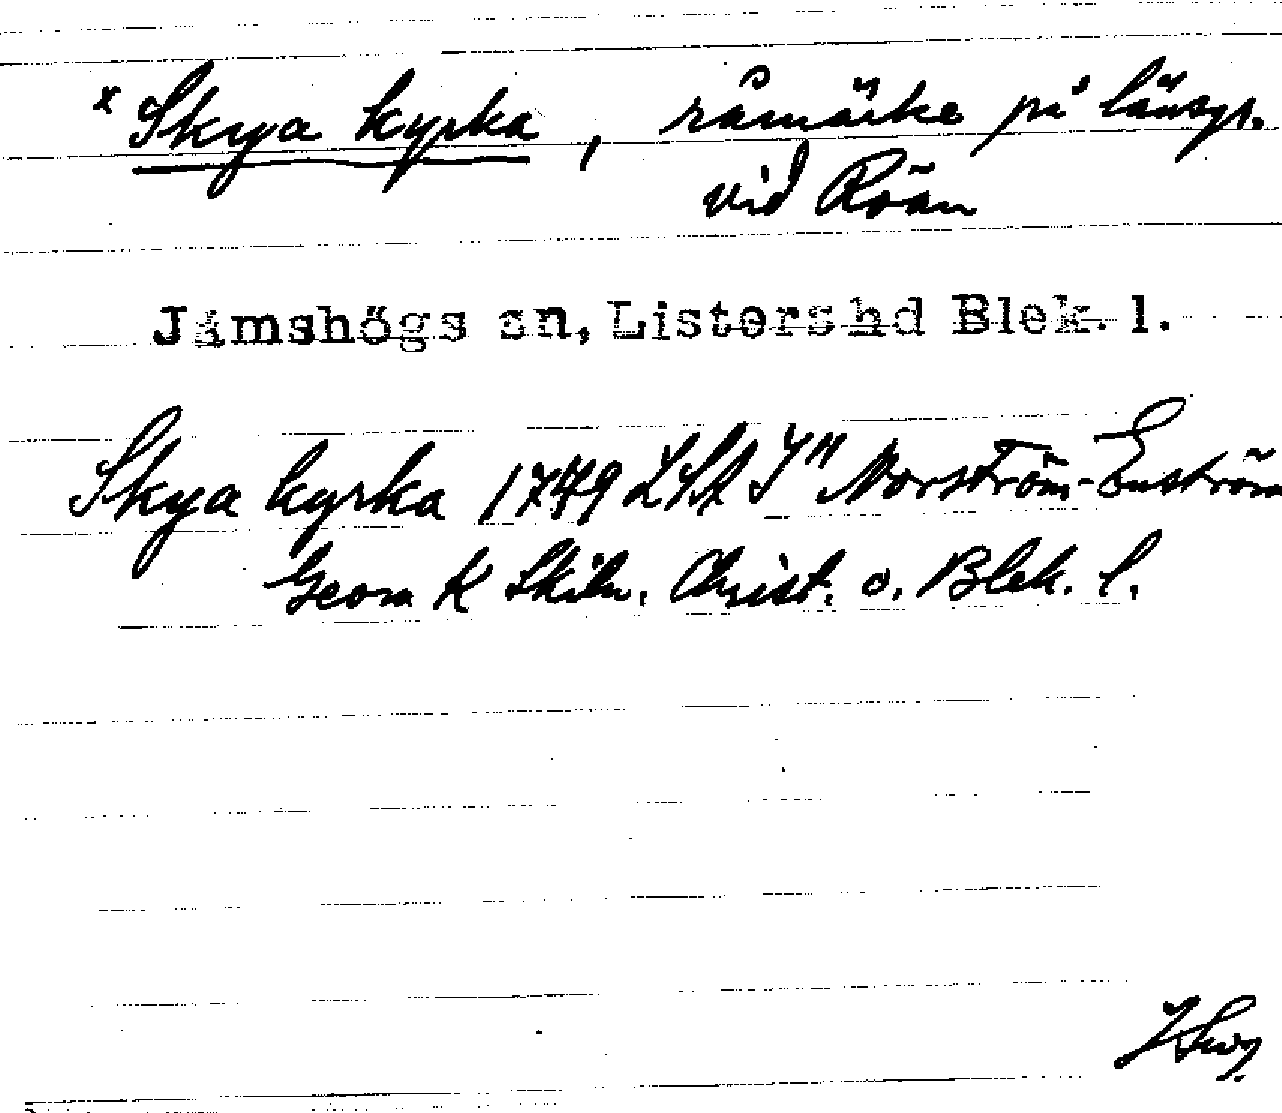 x Skya kyrka, råmärke på länsgr.
vid Röån
Jämshögs sn, Listers hd Blek. l.
Skya kyrka 1749 Norström-Enström
Geom K Skiln. Christ. o. Blek. l.